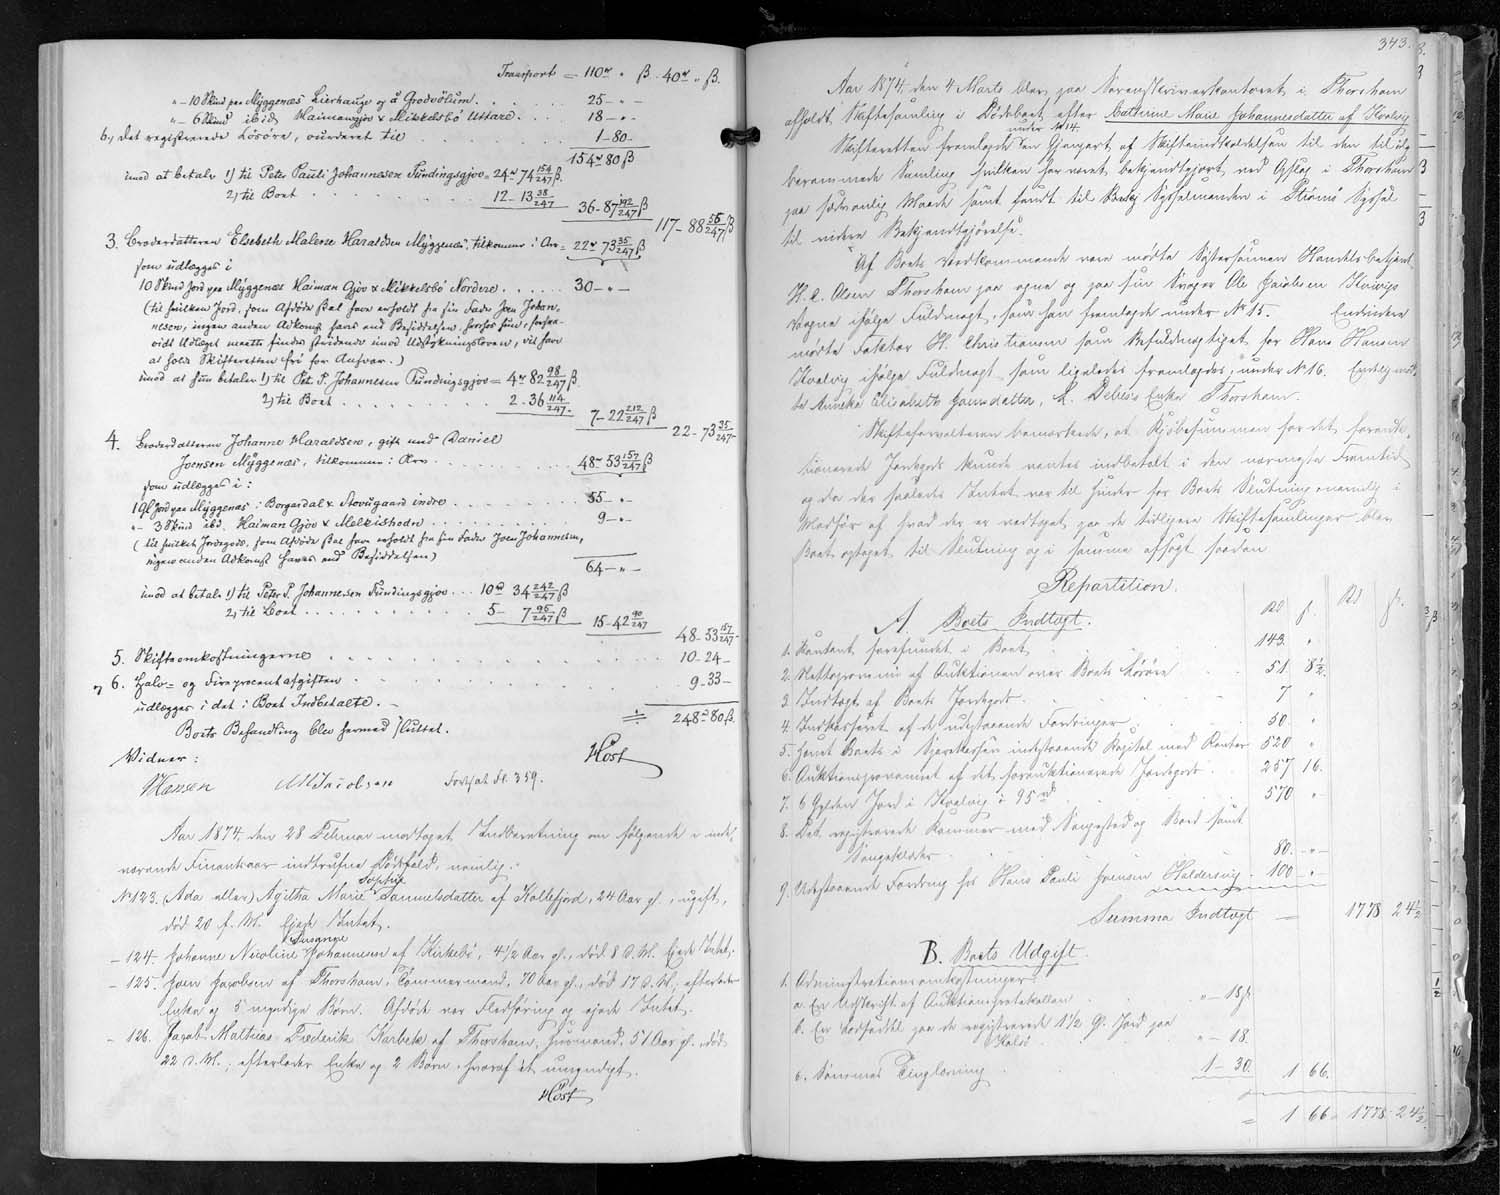 Transport = 110 rd " ß 40 rd " ß.
" - 10 Skind paa Myggenæs Lierhauge og å Grodvölum. 25 - " -
" - 6 Skind ibid Haimangjov & Mikkelsbö Uttare. 18 - " -
b., det registrerede Lösöre, vurderet til 1 - 80 -
154 rd 80 ß
imod at betale 1) til Peter Pauli Johannesen Tundingsgjov = 24 rd 74 154/247 ß.
2) til Boet 12 - 13 38/247 36 - 87 192/247 ß 117 - 88 55/247 ß
3. Broderdatteren Elsebeth Malene Haraldsen Myggenæs, tilkommer i Arv = 22 rd 73 35/247 ß
som udlægges i
10 Skind Jord paa Myggenæs Haiman Gjov & Mikkelsbö Nordere 30 - " -
(til hvilken Jord, som Afdøde skal have erholdt fra sin Fader Joen Johan-
nesen, ingen anden Adkomst haves end Besiddelsen, hvorfor hun, forsaa-
vidt Udlæget maatte findes stridende imod Udstykningsloven, vil have
at holde Skifteretten fri for Ansvar.)
imod at hun betaler 1) til Pet. P. Johannesen Tundingsgjov = 4 rd 82 98/247 ß
2) til Boet 2 - 36 114/247 - 7 - 22 212/247 ß 22 - 73 35/247 -
4. Broderdatteren Johanne Haraldsen, gift med Daniel
Joensen Myggenæs, tilkommer i Arv 48 - 53 157/247 ß
som udlægges i:
1 Gl Jord paa Myggenæs i Borgardal & Stovugaard indre 55 - " -
" - 3 Skind ibd. Haiman Gjov & Melkishodn 9 - " -
(til hvilket Jordegods, som Afdøde skal have erholdt fra sin Fader Joen Johannesen,
ingen anden Adkomst haves end Besiddelsen) 64 - " -
imod at betale 1) til Peter P. Johannesen Tundingsgjov 10 rd 34 242/247 ß
2) til Boet 5 - 7 95/247 ß 15 - 42 90/247 48 - 53 157/247 -
5. Skifteomkostningerne 10 - 24 -
6. Halv- og Fireprocentafgiften 9 - 33 -
udlægges i det i Boet Indbetalte. -
248 rd 80 ß.
Boets Behandling blev hermed sluttet.
Vidner: HØst
Hansen M Jacobsen Fortsat Fl. 359.
Aar 1874, den 28 Februar modtoget Indberetning om følgende i inde-
værende Finantsaar indtrufne Dødsfald, nemlig:
Sophie
No 123. (Ada eller) Agitha Marie Samuelsdatter af Kollefjord, 24 Aar gl., ugift,
død 20 f. M. Ejede Intet.
Susanne
- 124. Johanne Nicoline Johannesen af Kirkebø, 4 1/2 Aar gl., død 8 d. M. Ejede Intet.
- 125. Joen Jacobsen af Thorshavn, Tømmermand, 70 Aar gl., død 17 d. M., efterlader
Enke og 5 myndige Børn. Afdøde var Fledføring og ejede Intet.
- 126. Jacob Mathias Frederik Karbek af Thorshavn, Huusmand, 51 Aar gl., død
22 d. M.; efterlader Enke og 2 Børn, hvoraf ét umyndigt.
HØst
343.
Aar 1874, den 4 Marts blev paa Sorenskriverkontoret i Thorshavn
afholdt Skiftesamling i Dødsboet efter Cathrine Marie Johannesdatter af Kvalvig
under No 14
Skifteretten fremlagde en Gjenpart af Skifteindkaldelsen til den til idag
berammede Samling hvilken har været bekjendtgjort ved Opslag i Thorshavn
paa sædvanlig Maade samt sendt til Sysselmanden i Strømø Syssel
til videre Bekjendtgjørelse.
Af Boets Vedkommende vare mødte Søstersønnen Handelsbetjent
H. C. Olsen Thorshavn paa egne og paa sin Svoger Ole Jacobsen Kvivigs
Vegne ifølge Fuldmagt, som han fremlagde under No 15. Endvidere
mødte Faktor H. Christiansen som Befuldmægtiget for Hans Hansen
Kvalvig ifølge Fuldmagt som ligeledes fremlagdes, under No 16. Endelig mød-
te Annika Elisabeth Hansdatter, L. Debess Enke Thorshavn.
Skifteforvalteren bemærkede, at Kjøbesummen for det foreauk-
tionerede Jordegods kunde ventes indbetalt i den nærmeste Fremtid
og da der saaledes Intet var til Hinder for Boets Slutning nemlig i
Medfør af hvad der er vedtaget paa de tidligere Skiftesamlinger blev
Boet optaget til Slutning og i samme afsagt saadan
Repartition.
A. Boets Indtægt. Rd ß. Rd ß.
1. Kontant forefundet i Boet 143. "
2. Nettoprovenu af Auktionen over Boets Løsøre 51. 8 1/2.
3. Indtægt af Boets Jordegods 7 "
4. Indkasseret af de udestaaende Fordringer 50. "
5. Hævet Boets i Sparekassen indestaaende Kapital med Renter 520 "
6. Auktionsprovenuet af det foreauktionerede Jordegods 257 16.
7. 6 Gylden Jord i Kvalvig à 95 rd 570 "
8. Det registrerede Kammer med Sengested og Bord samt
Sengeklæder 80. - " -
9. Udestaaende Fordring hos Hans Pauli Joensen Haldersvig 100 - " -
Summa Indtægt = 1778 24 1/2
B. Boets Udgift.
1. Administrationsomkostninger:
a. En Udskrift af Auktionsprotokollen " - 18 ß.
b. En Lodseddel paa de registrerede 1 1/2 G. Jord paa
Kalsø " - 18.
c. Sammes Tinglæsning 1 - 30. 1 66.
= 1 66 1778 24 1/2